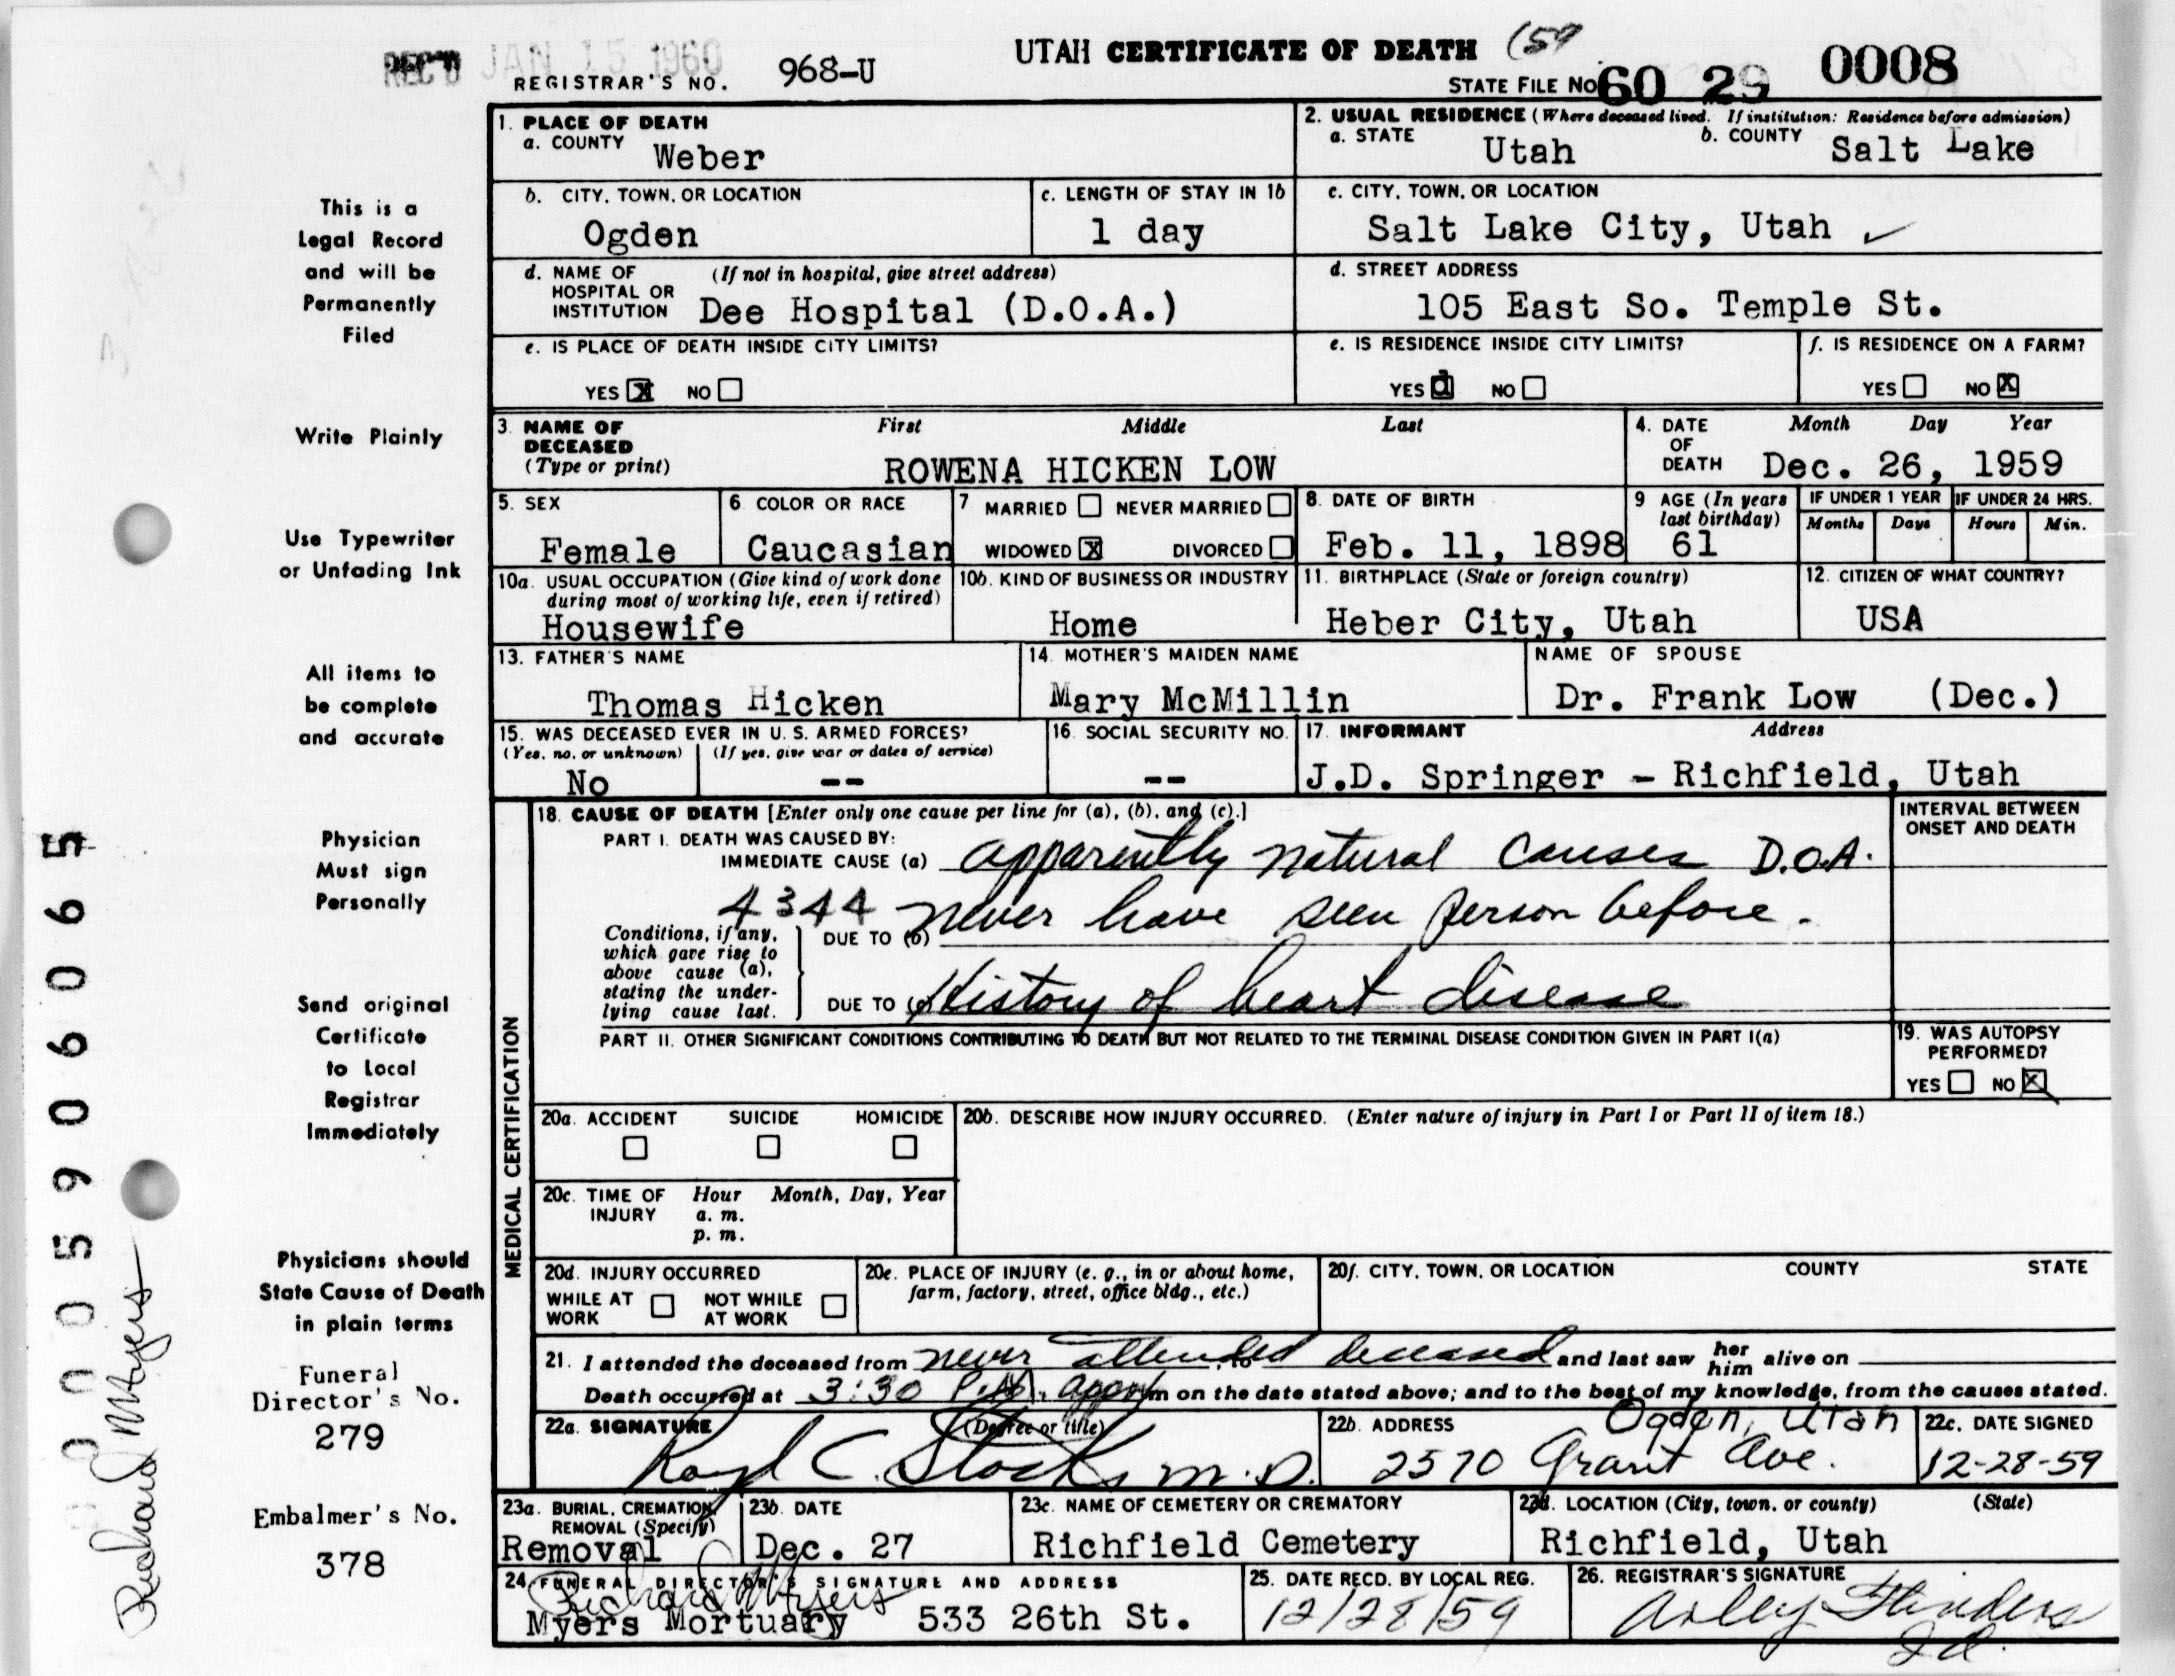 REC'D JAN 15 1960
REGISTRAR'S NO. 968-U
UTAH CERTIFICATE OF DEATH (59
STATE FILE NO. 60 29 0008
1. PLACE OF DEATH
a. COUNTY Weber
2. USUAL RESIDENCE (Where deceased lived. If institution: Residence before admission)
a. STATE Utah b. COUNTY Salt Lake
b. CITY, TOWN, OR LOCATION Ogden
c. LENGTH OF STAY IN 1b 1 day
c. CITY, TOWN, OR LOCATION Salt Lake City, Utah ✓
d. NAME OF HOSPITAL OR INSTITUTION (If not in hospital, give street address) Dee Hospital (D.O.A.)
d. STREET ADDRESS 105 East So. Temple St.
e. IS PLACE OF DEATH INSIDE CITY LIMITS?
YES X NO
e. IS RESIDENCE INSIDE CITY LIMITS?
YES d NO
f. IS RESIDENCE ON A FARM?
YES NO X
3. NAME OF DECEASED (Type or print) First Middle Last
ROWENA HICKEN LOW
4. DATE OF DEATH Month Day Year
Dec. 26, 1959
5. SEX Female
6. COLOR OR RACE Caucasian
7. MARRIED NEVER MARRIED
WIDOWED X DIVORCED
8. DATE OF BIRTH Feb. 11, 1898
9. AGE (In years last birthday) 61
IF UNDER 1 YEAR Months Days
IF UNDER 24 HRS. Hours Min.
10a. USUAL OCCUPATION (Give kind of work done during most of working life, even if retired) Housewife
10b. KIND OF BUSINESS OR INDUSTRY Home
11. BIRTHPLACE (State or foreign country) Heber City, Utah
12. CITIZEN OF WHAT COUNTRY? USA
13. FATHER'S NAME Thomas Hicken
14. MOTHER'S MAIDEN NAME Mary McMillin
NAME OF SPOUSE Dr. Frank Low (Dec.)
15. WAS DECEASED EVER IN U. S. ARMED FORCES?
(Yes, no, or unknown) No
(If yes, give war or dates of service) --
16. SOCIAL SECURITY NO. --
17. INFORMANT Address
J.D. Springer - Richfield, Utah
MEDICAL CERTIFICATION
18. CAUSE OF DEATH [Enter only one cause per line for (a), (b), and (c).]
INTERVAL BETWEEN ONSET AND DEATH
PART I. DEATH WAS CAUSED BY:
IMMEDIATE CAUSE (a) apparently natural causes D.O.A.
4344
Conditions, if any, which gave rise to above cause (a), stating the underlying cause last.
DUE TO (b) never have seen person before.
DUE TO (c) History of heart disease
PART II. OTHER SIGNIFICANT CONDITIONS CONTRIBUTING TO DEATH BUT NOT RELATED TO THE TERMINAL DISEASE CONDITION GIVEN IN PART I(a)
19. WAS AUTOPSY PERFORMED?
YES NO X
20a. ACCIDENT SUICIDE HOMICIDE
20b. DESCRIBE HOW INJURY OCCURRED. (Enter nature of injury in Part I or Part II of item 18.)
20c. TIME OF INJURY Hour Month, Day, Year
a. m.
p. m.
20d. INJURY OCCURRED
WHILE AT WORK NOT WHILE AT WORK
20e. PLACE OF INJURY (e. g., in or about home, farm, factory, street, office bldg., etc.)
20f. CITY, TOWN, OR LOCATION COUNTY STATE
21. I attended the deceased from never attended to deceased and last saw her him alive on
Death occurred at 3:30 P.M. m on the date stated above; and to the best of my knowledge, from the causes stated.
22a. SIGNATURE (Degree or title)
C. Stocks M.D.
22b. ADDRESS Ogden, Utah
2570 Grant Ave.
22c. DATE SIGNED 12-28-59
23a. BURIAL, CREMATION, REMOVAL (Specify) Removal
23b. DATE Dec. 27
23c. NAME OF CEMETERY OR CREMATORY Richfield Cemetery
23d. LOCATION (City, town, or county) (State)
Richfield, Utah
24. FUNERAL DIRECTOR'S SIGNATURE AND ADDRESS
Richard Myers
Myers Mortuary 533 26th St.
25. DATE RECD. BY LOCAL REG. 12/28/59
26. REGISTRAR'S SIGNATURE
Arley Flinders
This is a
Legal Record
and will be
Permanently
Filed
Write Plainly
Use Typewriter
or Unfading Ink
All items to
be complete
and accurate
Physician
Must sign
Personally
Send original
Certificate
to Local
Registrar
Immediately
Physicians should
State Cause of Death
in plain terms
Funeral
Director's No.
279
Embalmer's No.
378
Richard Myers